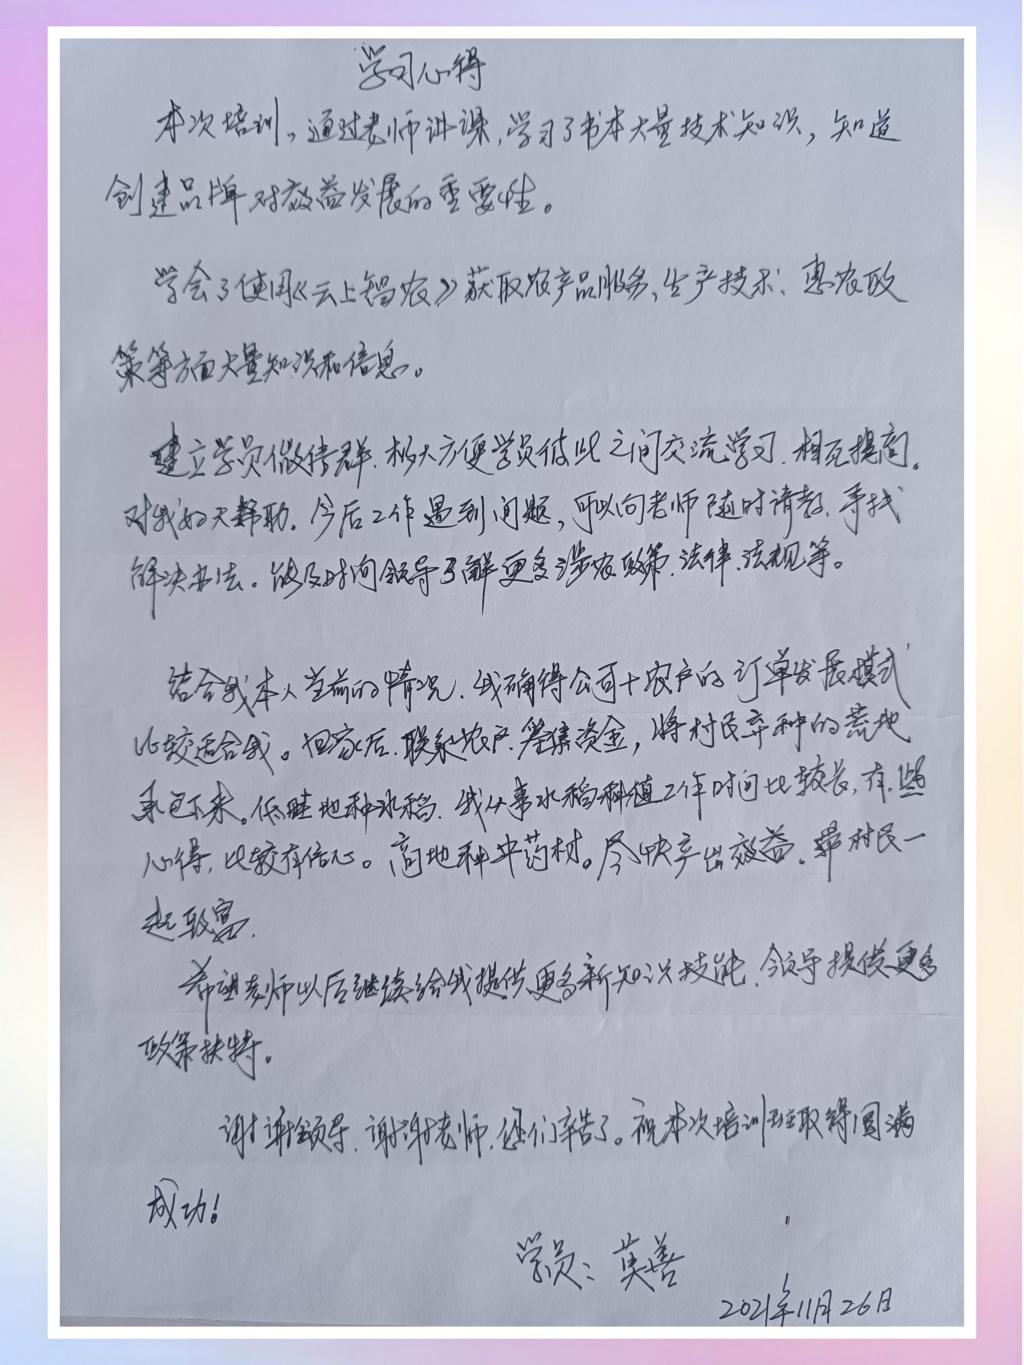 学习心得
本次培训。通过老师讲课,学习了书本大量技术知识,知道
创建品牌对效益发展的重要性。
学会了使用《云上智农》获取农产品服务、生产技术、惠农政
策等方面大量知识和信息。
建立学员微信群、极大方便学员彼此之间交流学习、相互提高。
对我的大帮助。今后工作遇到问题,可以向老师随时请教、寻找
解决办法。能及时向领导了解更多涉农政策、法律、法规等。
结合我本人当前的情况、我确得公司+农户的订单发展模式
比较适合我。回家后、联系农户、筹集资金,将村民弃种的荒地
承包下来。低畦地种水稻、我从事水稻种植工作时间比较长,有些
心得,比较有信心。高地种中药材。尽快产出效益、带村民一
起致富.
希望老师以后继续给我提供更多新知识技能、领导提供更多
政策扶持。
谢谢领导、谢谢老师、您们辛苦了。祝本次培训班取得圆满
成功!
学员:莫善
2021年11月26日